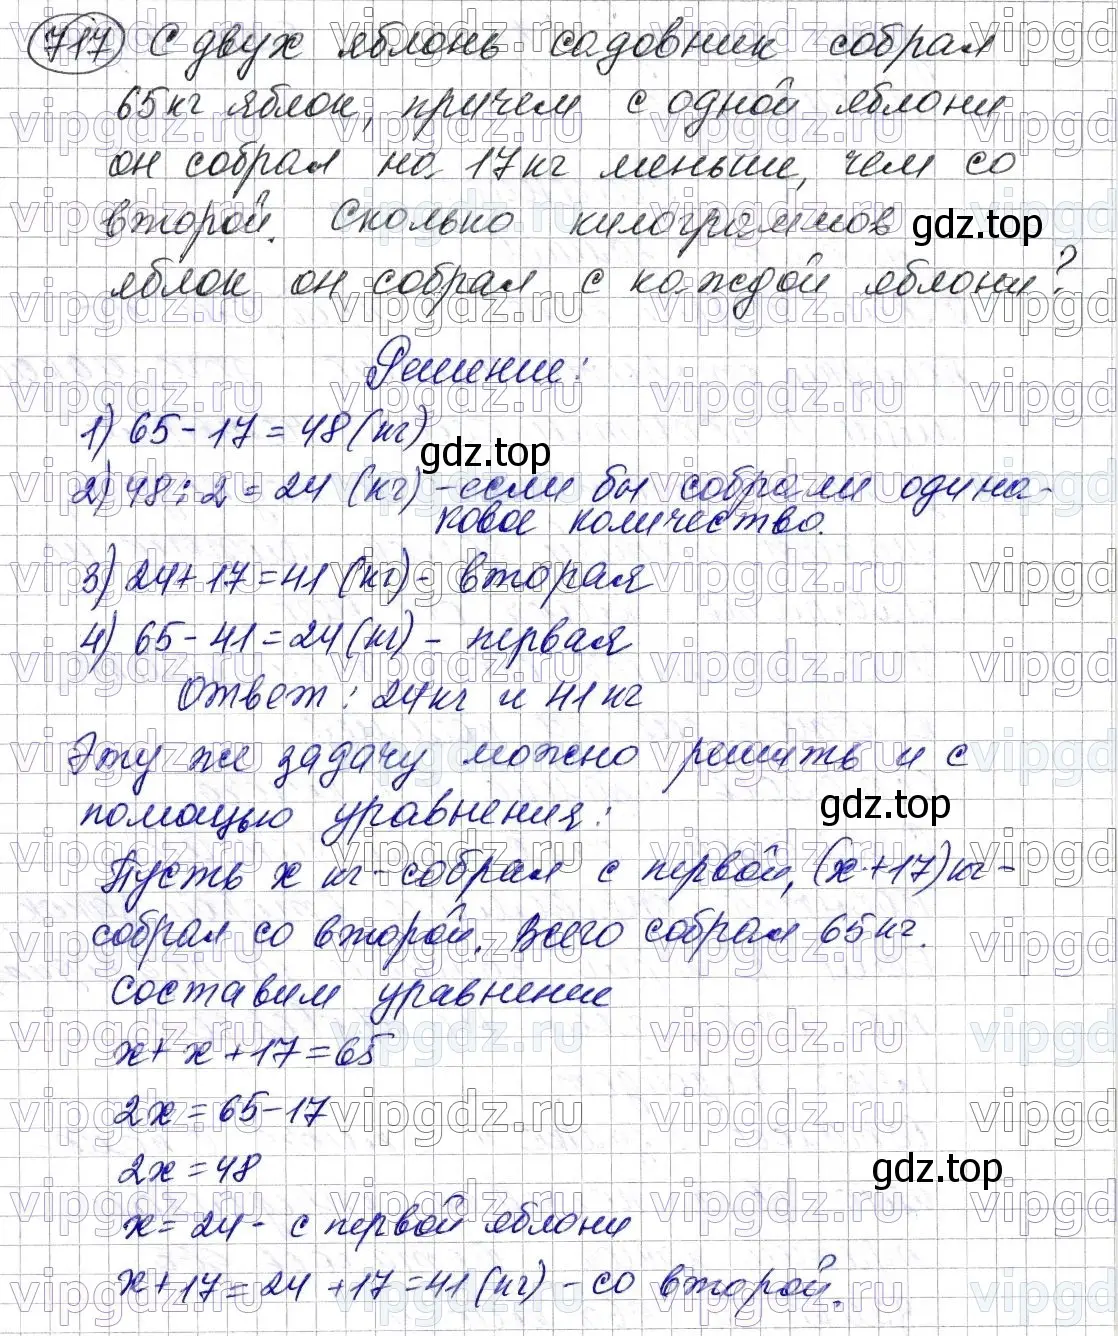 717 С двух яблонь садовник собрал
65 кг яблок, причем с одной яблони
он собрал на 17 кг меньше, чем со
второй. Сколько килограммов
gdz.top
яблок он собрал с каждой яблони?
Решение:
1) 65 - 17 = 48 (кг)
gdz.top
2) 48 : 2 = 24 (кг) - если бы собрали одина-
ковое количество.
3) 24 + 17 = 41 (кг) - вторая
4) 65 - 41 = 24 (кг) - первая
Ответ: 24 кг и 41 кг
Эту же задачу можно решить и с
gdz.top
помощью уравнения:
Пусть x кг - собрал с первой, (x + 17) кг -
собрал со второй. Всего собрал 65 кг.
Составим уравнение
x + x + 17 = 65
2x = 65 - 17
2x = 48
gdz.top
x = 24 - с первой яблони
x + 17 = 24 + 17 = 41 (кг) - со второй.
vipgdz.ru